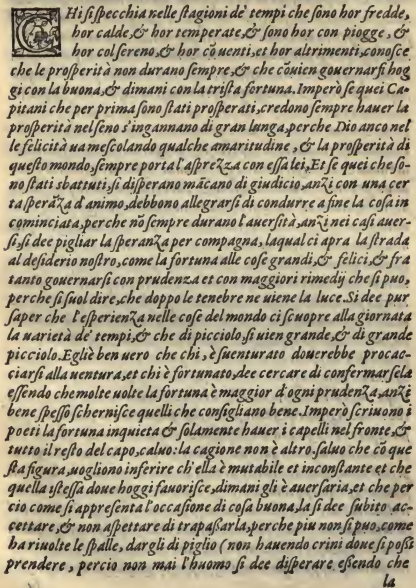 CHi si specchia nelle stagioni de' tempi che sono hor fredde,
hor calde, & hor temperate, & sono hor con piogge, &
hor col sereno, & hor cõ uenti, et hor altrimenti, conosce
che le prosperità non durano sempre, & che cõuien gouernarsi hog
gi con la buona, & dimani con la trista fortuna. Imperò se quei Ca-
pitani che per prima sono stati prosperati, credono sempre hauer la
prosperità nel seno s'ingannano di gran lunga, perche Dio anco nel
le felicità ua mescolando qualche amaritudine, & la prosperità di
questo mondo, sempre porta l'asprezza con essa lei, Et se quei che so-
no stati sbattuti, si disperano mãcano di giudicio, anzi con una cer
ta sperãza d'animo, debbono allegrarsi di condurre a fine la cosa in
cominciata, perche nõ sempre durano l'auersità, anzi nei casi auer-
si, si dee pigliar la speranza per compagna, laqual ci apra la strada
al desiderio nostro, come la fortuna alle cose grandi, & felici, & fra
tanto gouernarsi con prudenza et con maggiori rimedij che si puo,
perche si suol dire, che doppo le tenebre ne uiene la luce. Si dee pur
saper che l'esperienza nelle cose del mondo ci scuopre alla giornata
la uarietà de' tempi, & che di picciolo, si uien grande, & di grande
picciolo. Egli è ben uero che chi, è suenturato douerebbe procac-
ciarsi alla uentura, et chi è fortunato, dee cercare di confermarsela
essendo che molte uolte la fortuna è maggior d'ogni prudenza, anzi
bene spesso schernisce quelli che consigliano bene. Imperò scriuono i
poeti la fortuna inquieta & solamente hauer i capelli nel fronte, &
tutto il resto del capo, caluo: la cagione non è altro, saluo che cõ que
sta figura, uogliono inferire ch'ella è mutabile et inconstante et che
quella istessa doue hoggi fauorisce, dimani gli è auersaria, et che per
cio come si appresenta l'occasione di cosa buona, la si dee subito ac-
cettare, & non aspettare di trapassarla, perche piu non si puo, come
ha riuolte le spalle, dargli di piglio (non hauendo crini doue si possi
prendere, percio non mai l'huomo si dee disperare essendo che
la